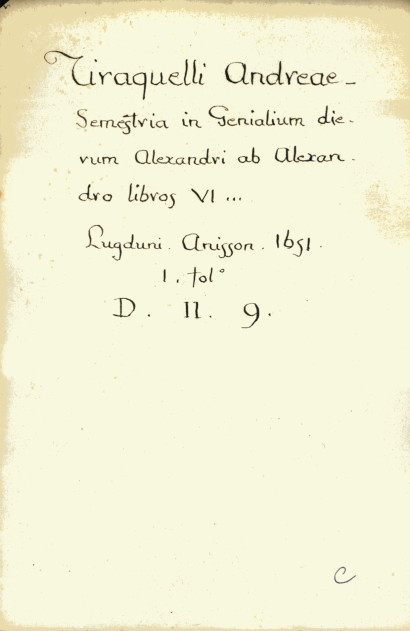 Tiraquelli Andreae_
Semestria in Genialium die-
rum Alexandri ab Alexan-
dro libros VI ...
Lugduni. Anisson. 1651.
1. fol°
D. II. 9.
C